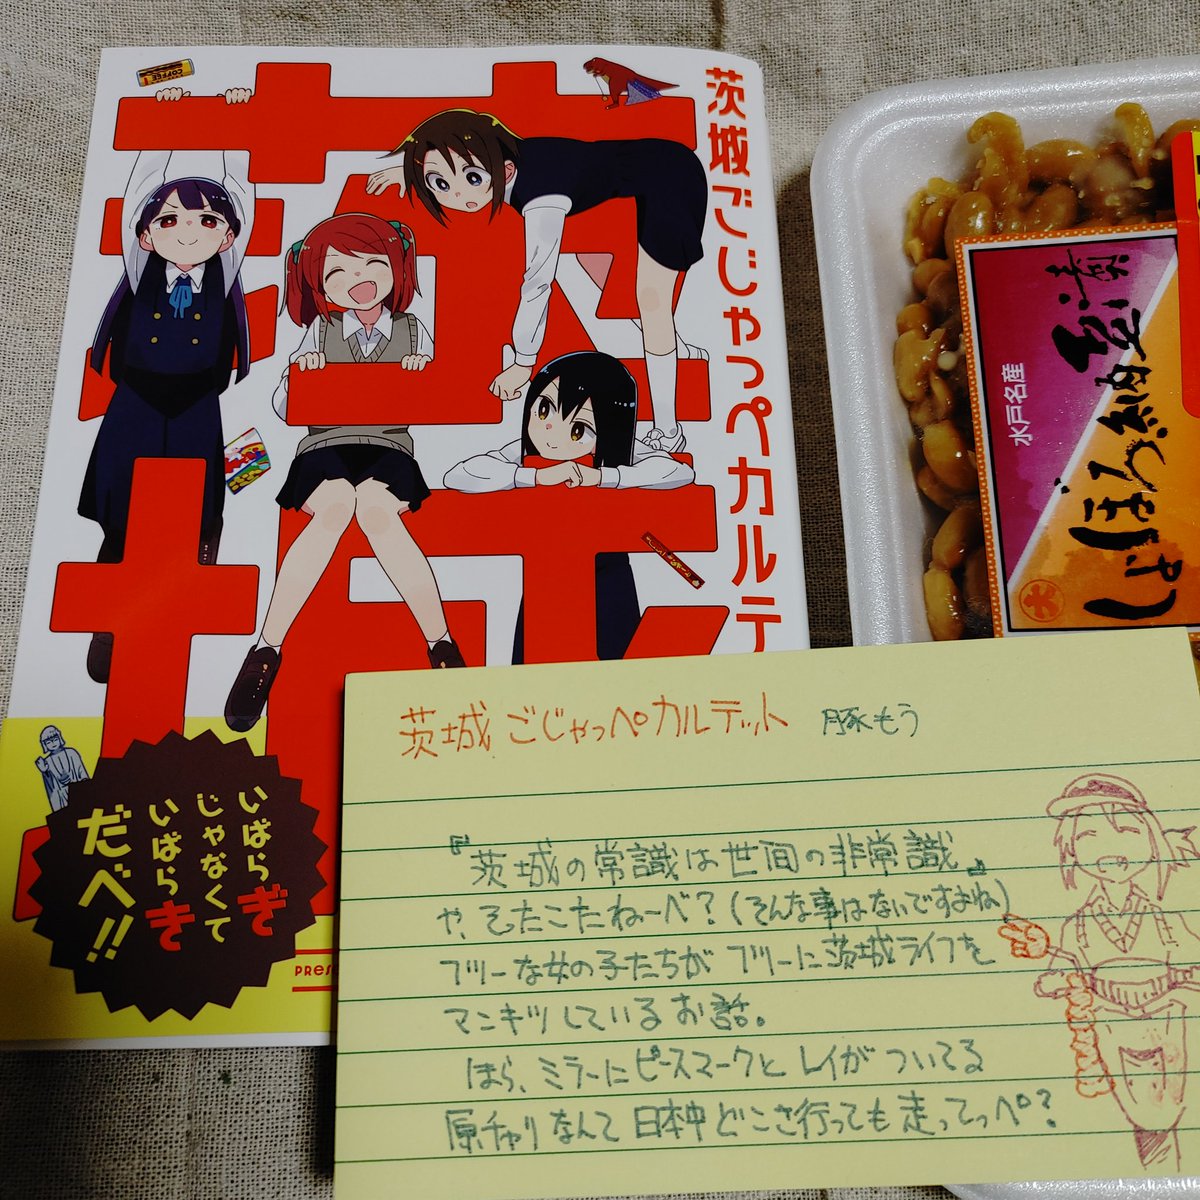 茨城ごじゃっぺカルテ
茨城
COFFEE
いばらぎ
じゃなくて
いばらき
だべ!!
PRES
水戸名産
しょぼろ納豆
茨城 ごじゃっぺカルテット 豚もう
『茨城の常識は世間の非常識』
や、そたこたねーべ?(そんな事はないですよね)
フリーな女の子たちが フリーに茨城ライフを
マンキツしているお話。
ほら、ミラーにピースマークと レイが ついてる
原チャリなんて 日本中どこさ行っても 走ってっぺ?